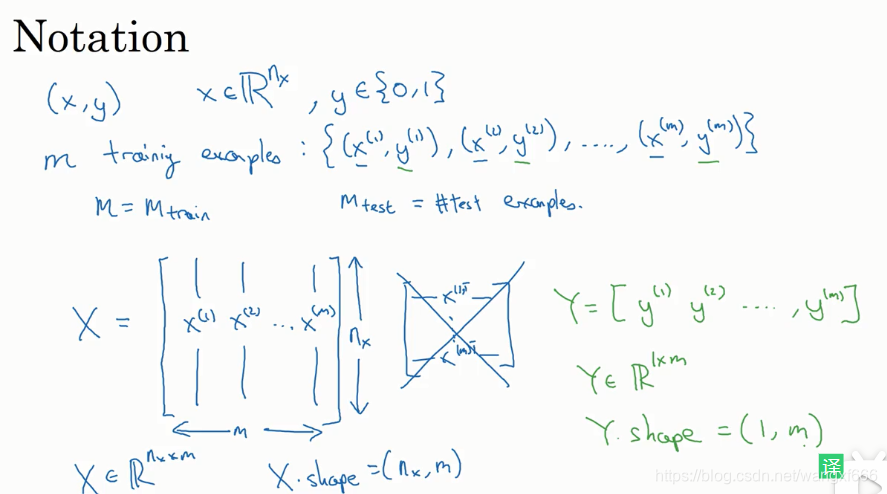 Notation
(x,y) x∈ℝ^{n_x}, y∈{0,1}
m trainiy examples: {(x^{(1)}, y^{(1)}), (x^{(2)}, y^{(2)}), ...., (x^{(m)}, y^{(m)})}
M = M_{train} M_{test} = #test examples.
X = [x^{(1)} x^{(2)} ... x^{(m)}] n_x
m
x^{(1)T}
x^{(m)T}
Y = [y^{(1)} y^{(2)} ...., y^{(m)}]
Y∈ℝ^{1×m}
Y.shape = (1, m)
X∈ℝ^{n_x×m} X.shape = (n_x, m)
译
https://blog.csdn.net/wangxf666